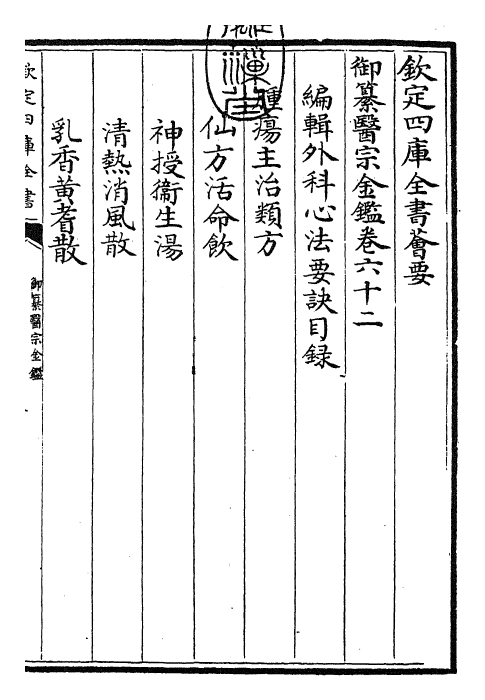 欽定四庫全書薈要
御纂醫宗金鑑卷六十二
編輯外科心法要訣目録
腫瘍主治類方
仙方活命飲
神授衞生湯
清熱消風散
乳香黄耆散
欽定四庫全書
御纂醫宗金鑑